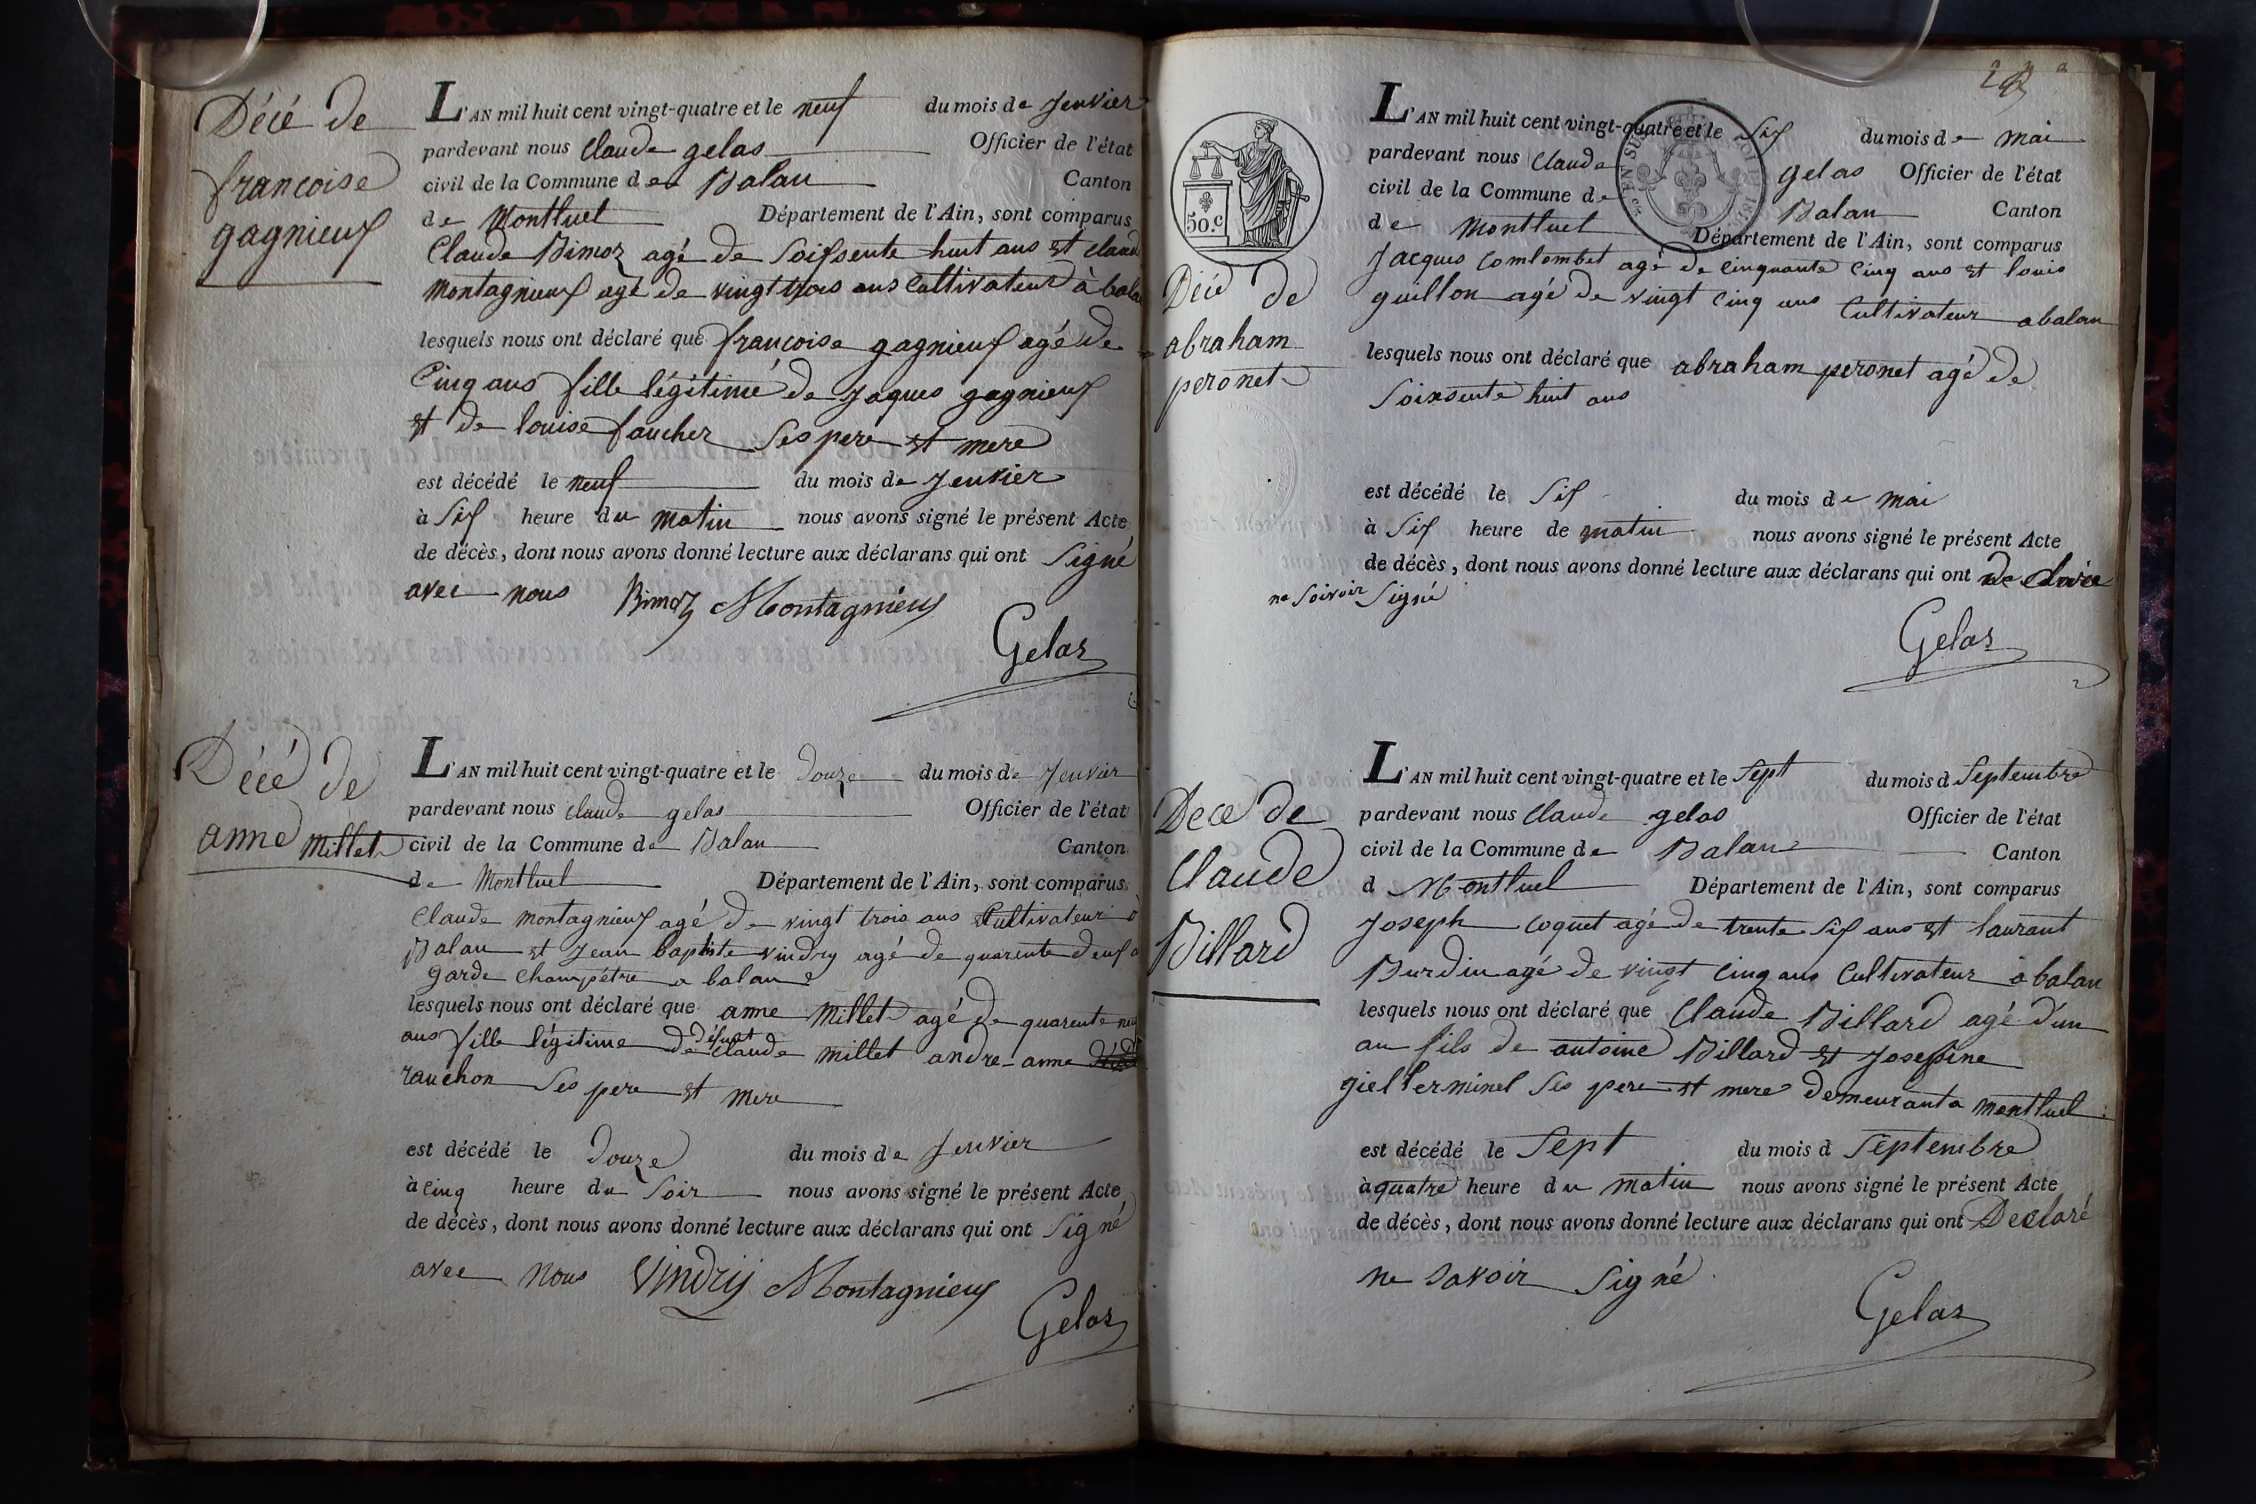 Décé de
francoise
gagnieux
L'AN mil huit cent vingt-quatre et le neuf du mois de Jenvier
pardevant nous Claude gelas Officier de l'état
civil de la Commune de Balan Canton
de Montluel Département de l'Ain, sont comparus
Claude Bimoz agé de Soixsente huit ans et claude
montagnieux agé de vingt trois ans Cultivateur à bala
lesquels nous ont déclaré que francoise gagnieux agé de
Cinq ans fille légitime de Jaques gagnieux
et de louise faucher Ses pere et mere
est décédé le neuf du mois de Jenvier
à Six heure du matin nous avons signé le présent Acte
de décès, dont nous avons donné lecture aux déclarans qui ont Signé
avec nous Bimoz Montagnieux
Gelas
Décé de
anne Millet
L'AN mil huit cent vingt-quatre et le douze du mois de Jenvier
pardevant nous claude gelas Officier de l'état
civil de la Commune de Balan Canton
de Montluel Département de l'Ain, sont comparus
Claude montagnieux agé de vingt trois ans Cultivateur à
Balan et Jean baptiste vindry agé de quarente deux a
garde champétre a balan
lesquels nous ont déclaré que anne Millet agé de quarente neuf
ans fille légitime de défunt claude millet andre anne
rauchon Ses pere et mere
est décédé le douze du mois de Jenvier
à cinq heure du Soir nous avons signé le présent Acte
de décès, dont nous avons donné lecture aux déclarans qui ont Signé
avec nous Vindry Montagnieux
Gelas
50.C
L'AN mil huit cent vingt-quatre et le Six du mois de mai
pardevant nous Claude gelas Officier de l'état
civil de la Commune de Balan Canton
de Montluel Département de l'Ain, sont comparus
Jacques Comlombet agé de Cinquante Cinq ans et louis
guillon agé de vingt Cinq ans Cultivateur a balan
Décé de
abraham
peronet
lesquels nous ont déclaré que abraham peronet agé de
Soixsente huit ans
est décédé le Six du mois de mai
à Six heure de matin nous avons signé le présent Acte
de décès, dont nous avons donné lecture aux déclarans qui ont
ne Soivoir Signé
Gelas
Decé de
Claude
Billard
L'AN mil huit cent vingt-quatre et le Sept du mois d Septembre
pardevant nous Claude gelas Officier de l'état
civil de la Commune de Balan Canton
d Montluel Département de l'Ain, sont comparus
Joseph Coquet agé de trente Six ans et laurant
Burdin agé de vingt Cinq ans Cultivateur a balan
lesquels nous ont déclaré que Claude Billard agé d'un
an fils de antoine Billard et Josephine
giellerminel Ses pere et mere demeurant a montluel
est décédé le Sept du mois d Septembre
à quatre heure du matin nous avons signé le présent Acte
de décès, dont nous avons donné lecture aux déclarans qui ont Declaré
ne Savoir Signé
Gelas